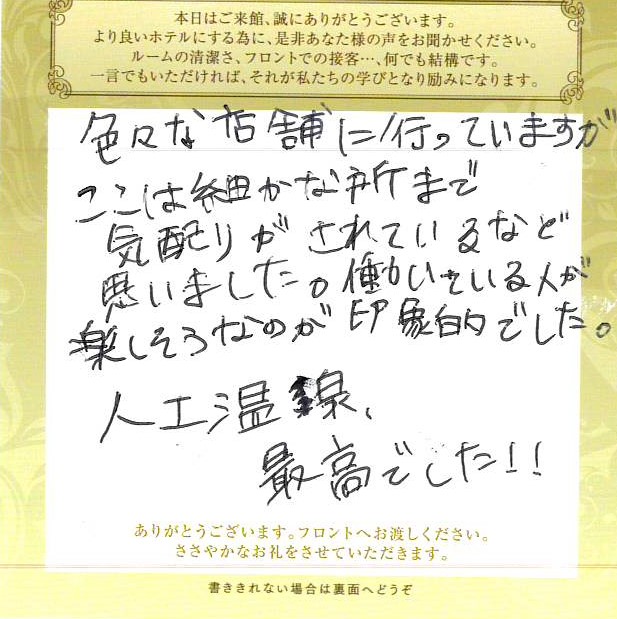 本日はご来館、誠にありがとうございます。
より良いホテルにする為に、是非あなた様の声をお聞かせください。
ルームの清潔さ、フロントでの接客…、何でも結構です。
一言でもいただければ、それが私たちの学びとなり励みになります。
色々な店舗に行っていますが
ここは細かな所まで
気配りがされているなど
思いました。働いている人が
楽しそうなのが印象的でした。
人工温泉、
最高でした!!
ありがとうございます。フロントへお渡しください。
ささやかなお礼をさせていただきます。
書ききれない場合は裏面へどうぞ